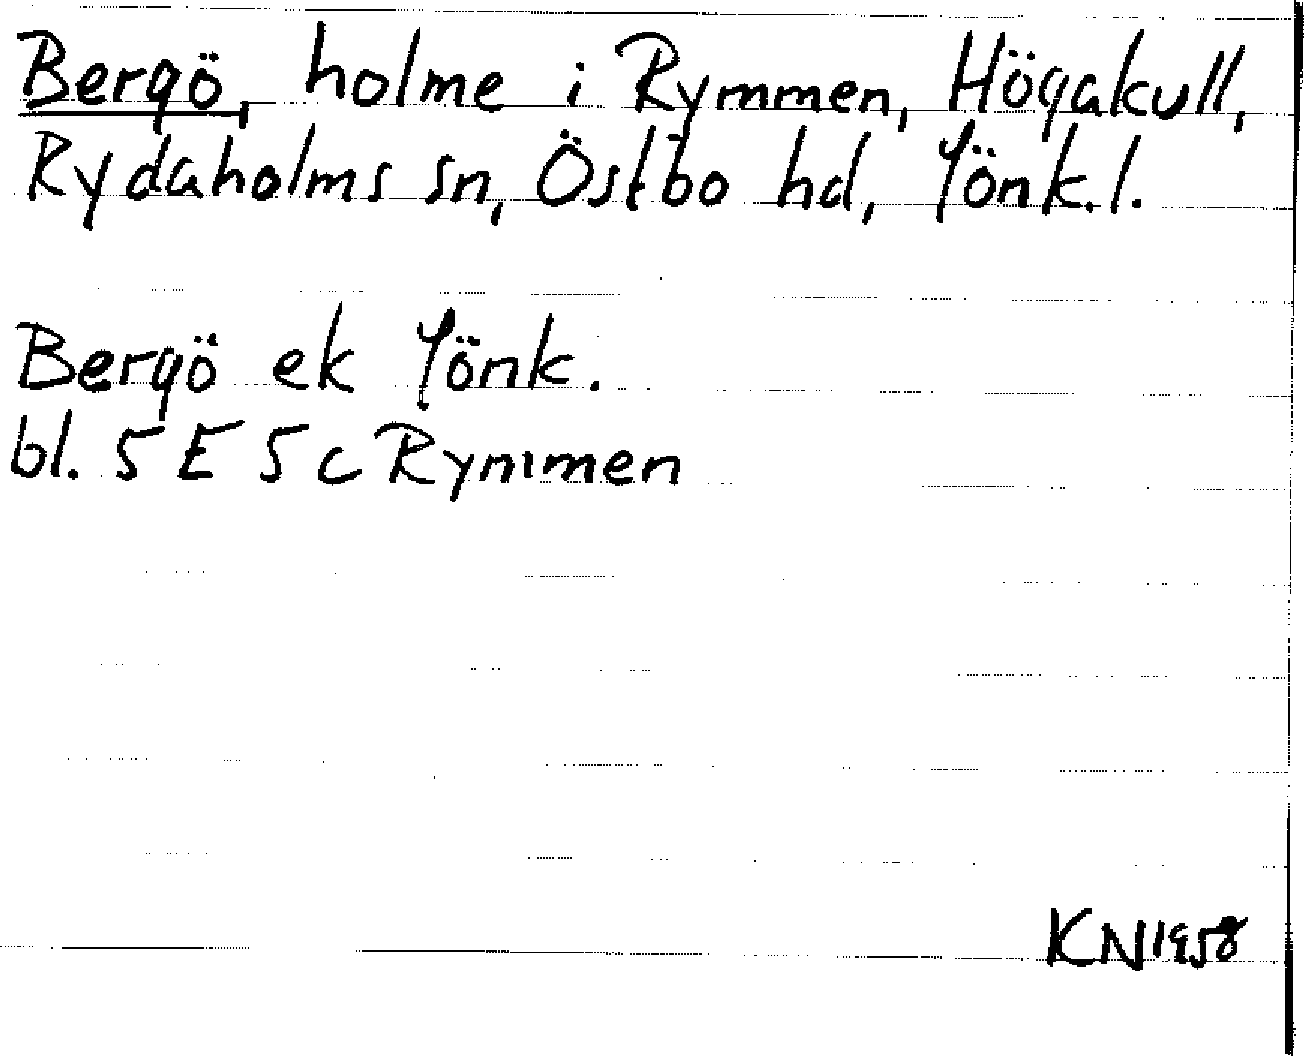 Bergö, holme i Rymmen, Högakull,
Rydaholms sn, Östbo hd, Jönk. l.
Bergö ek Jönk.
bl. 5 E 5 c Rymmen
KN 1958